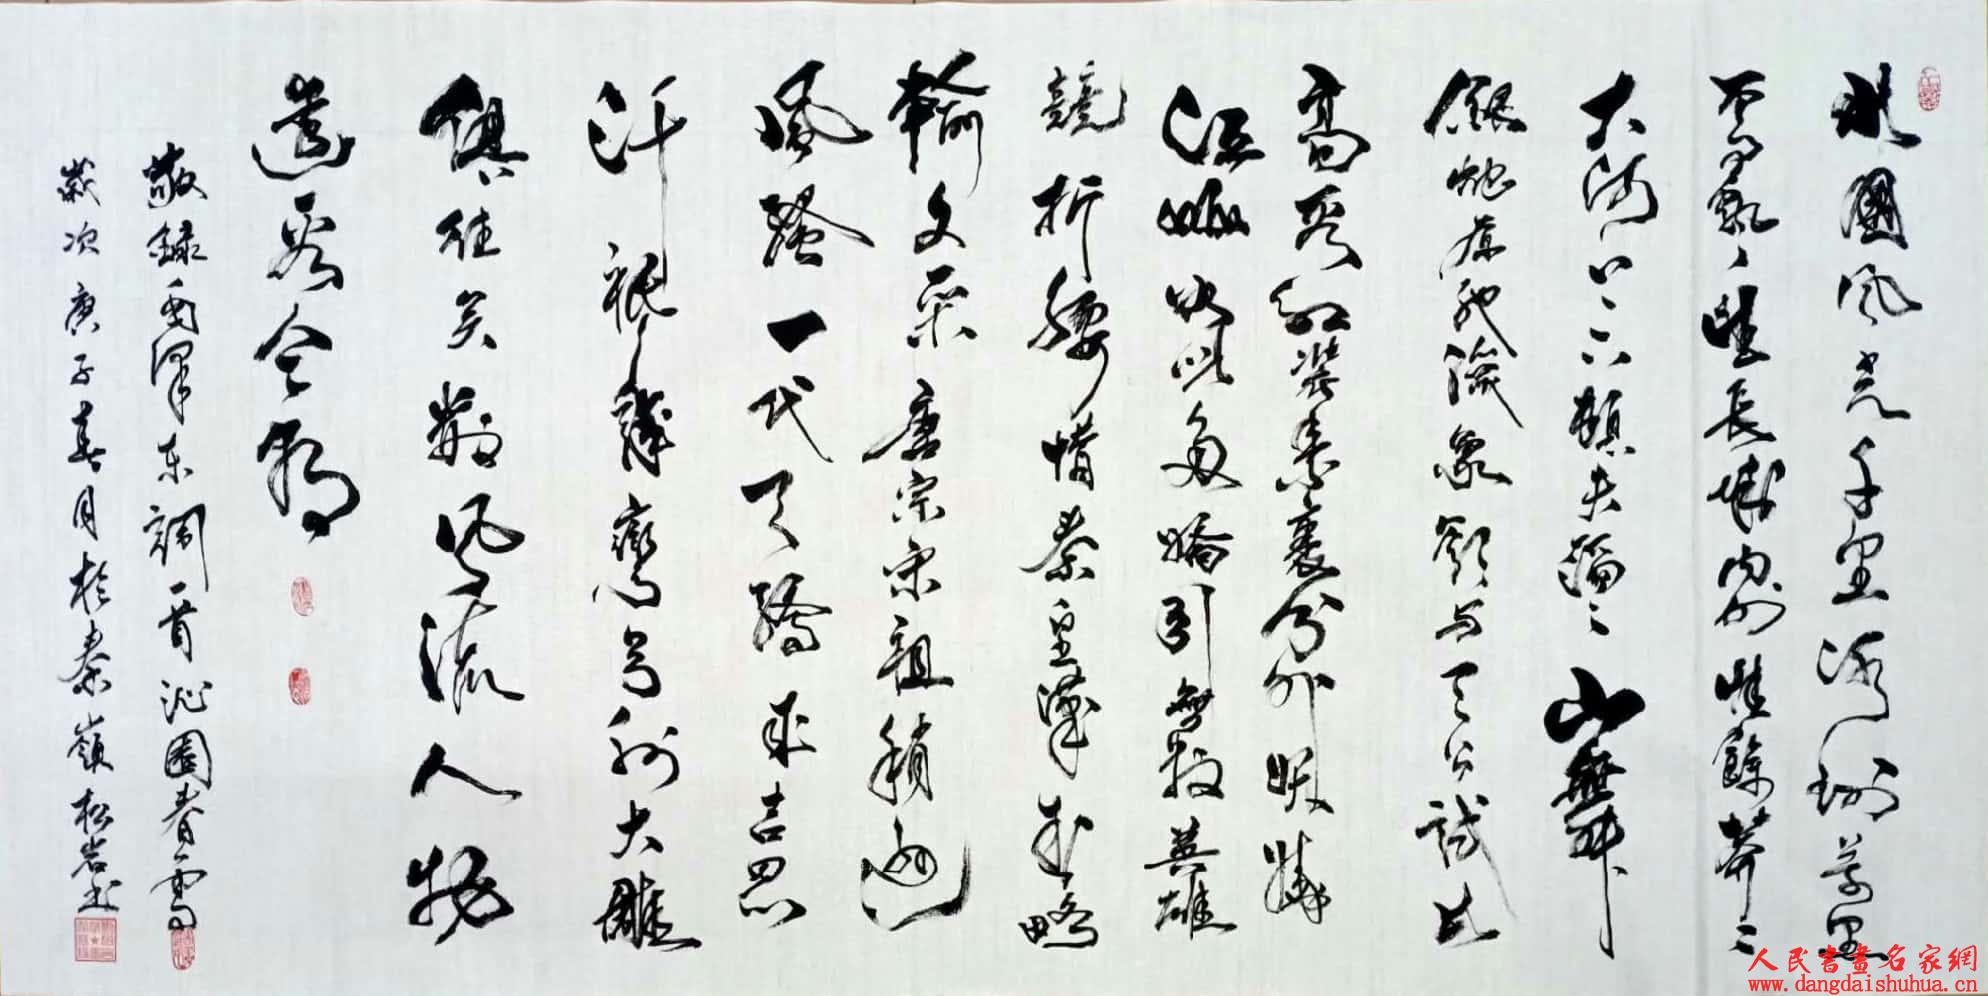 北國風光千里冰封萬里
雪飄望長城內外惟餘莽〻
大河上下頓失滔〻山舞
銀蛇原馳蠟象欲與天公試比
高看紅裝素裹分外妖嬈
江山如此多嬌引無數英雄
競折腰惜秦皇漢武略
輸文采唐宗宋祖稍遜
風騷一代天驕成吉思
汗祇識彎弓射大雕
俱往矣數風流人物
還看今朝
敬錄毛澤東詞一首沁園春雪
歲次庚子春月於秦嶺松岩書
人民書畫名家網
www.dangdaishuhua.cn